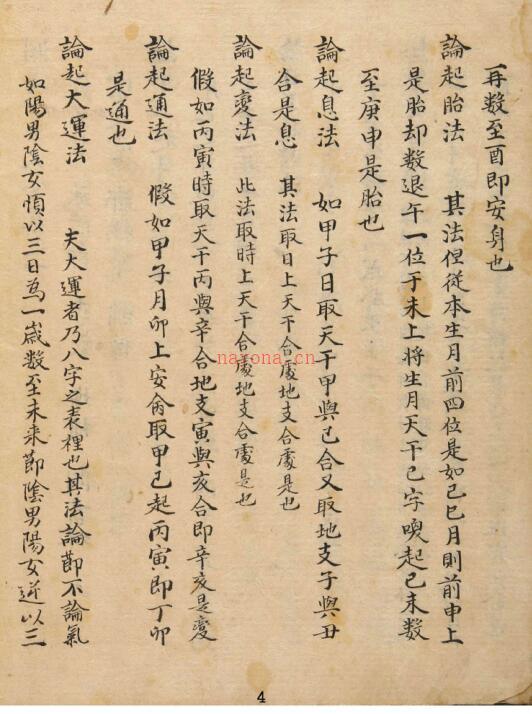 再数至酉即安身也
論起胎法　其法但從本生月前四位是如己巳月則前申上
是胎却数退午一位于未上将生月天干己字喚起己未数
至庚申是胎也
論起息法　如甲子日取天干甲與己合又取地支子與丑
合是息　其法取日上天干合處地支合處是也
論起変法　此法取時上天干合處地支合處是也
假如丙寅時取天干丙與辛合地支寅與亥合即辛亥是変
論起通法　假如甲子月卯上安命取甲己起丙寅即丁卯
是通也
論起大運法　夫大運者乃八字之表裡也其法論節不論氣
如陽男陰女順以三日為一歲数至未来節陰男陽女逆以三
nayona.cn
4